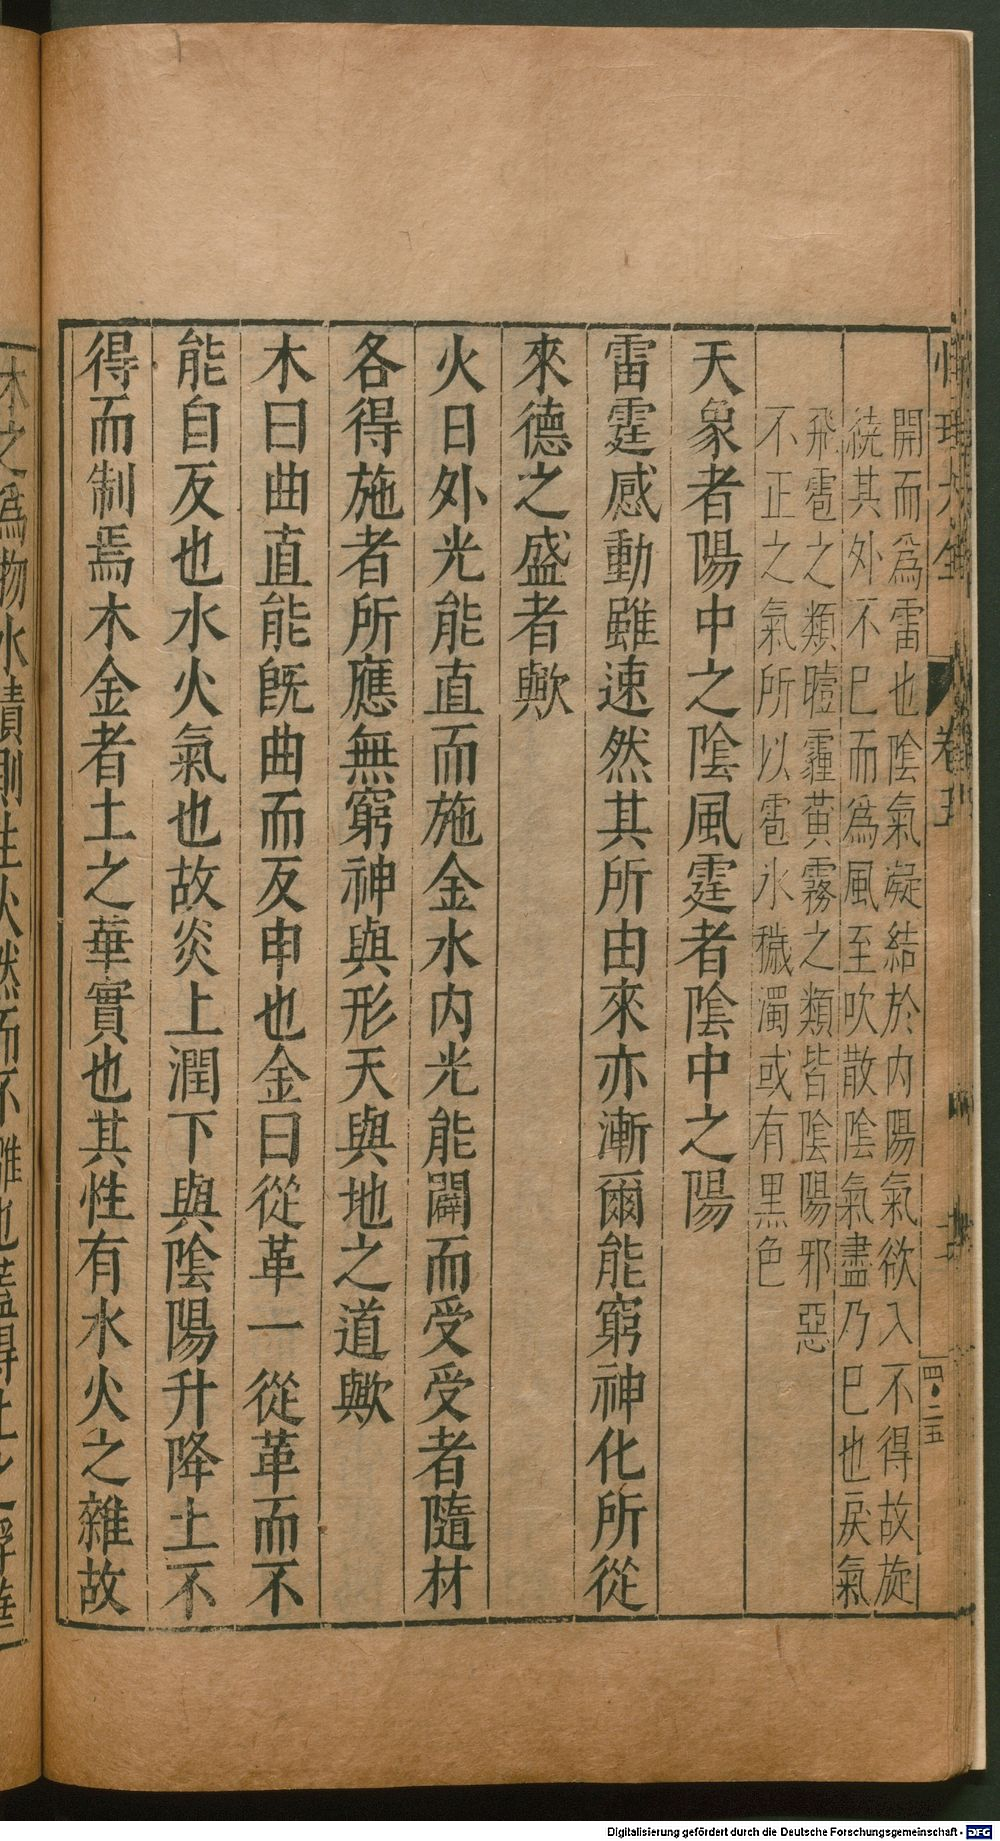 性理大全 卷五
四・二五
開而爲雷也陰氣凝結於内陽氣欲入不得故旋
繞其外不已而爲風至吹散陰氣盡乃已也戾氣
飛雹之類曀霾黃霧之類皆陰陽邪惡
不正之氣所以雹氷穢濁或有黒色
天象者陽中之陰風霆者陰中之陽
雷霆感動雖速然其所由來亦漸爾能窮神化所從
來德之盛者歟
火日外光能直而施金水内光能闢而受受者隨材
各得施者所應無窮神與形天與地之道歟
木曰曲直能旣曲而反申也金曰從革一從革而不
能自反也水火氣也故炎上潤下與陰陽升降土不
得而制焉木金者土之華實也其性有水火之雜故
木之爲物水漬則生火然而不離也蓋得土之浮華